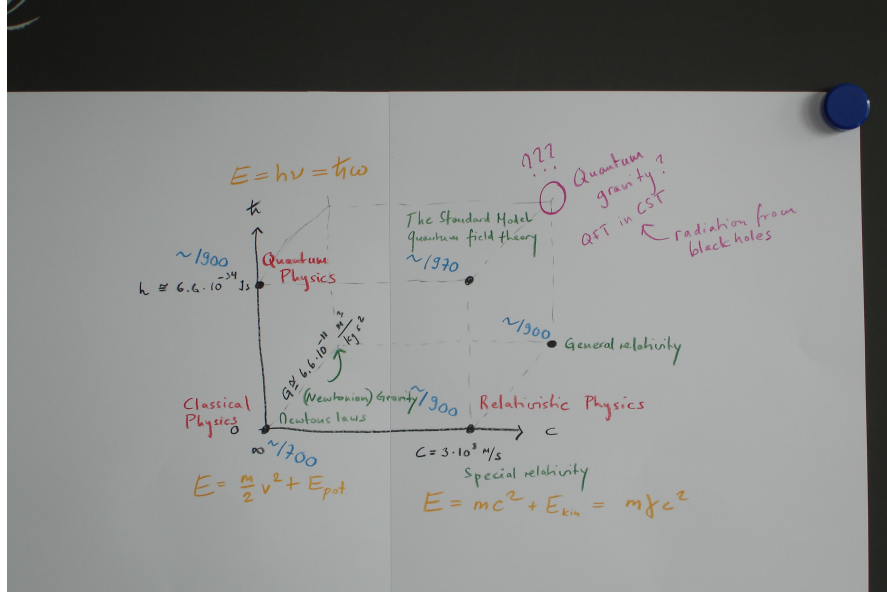 ???
E = hν = ħω
Quantum
gravity?
QFT in CST
radiation from
black holes
ħ
The Standard Model
quantum field theory
~1970
~1900
Quantum
Physics
h ≅ 6.6·10⁻³⁴ Js
~1900
General relativity
G ≅ 6.6·10⁻¹¹ m³/kg s²
(Newtonian) Gravity
Newtons laws
~1900
Classical
Physics
0
Relativistic Physics
∞
~1700
C = 3·10⁸ m/s
c
Special relativity
E = m/2 v² + E_pot
E = mc² + E_kin = mγc²